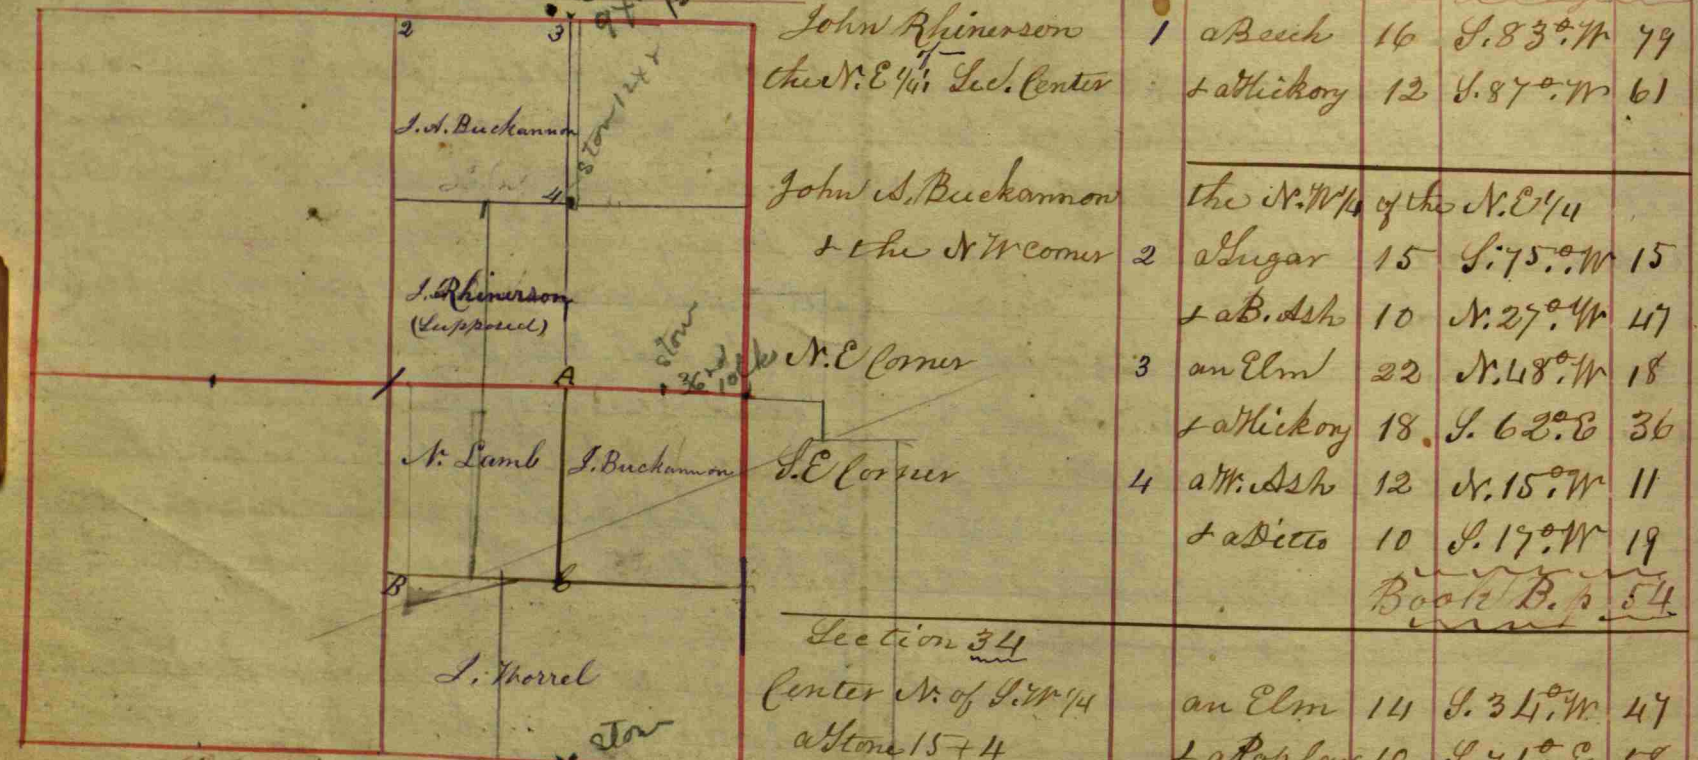 2
3
9x
J. A. Buckannon
Ston 12x
4
J. Rhinerson
(Supposed)
ston
36
A
N. Lamb
J. Buckannon
B
C
J. Thorrel
ston
John Rhinerson 1 a Beech 16 S. 83°. W 79
the N. E 1/4 of Sec. Center + a Hickory 12 S. 87°. W 61
John A. Buckannon the N. W 1/4 of the N. E 1/4
+ the N W corner 2 a Sugar 15 S. 75°. W 15
+ a B. Ash 10 N. 27°. W 47
N. E Corner 3 an Elm 22 N. 48°. W 18
+ a Hickory 18. S. 62°. E 36
S. E Corner 4 a W. Ash 12 N. 15°. W 11
+ a Ditto 10 S. 17°. W 19
Book B. p 54
Section 34
Center N. of S. W 1/4 an Elm 14 S. 34°. W 47
a Stone 15 + 4 + a Poplar 10